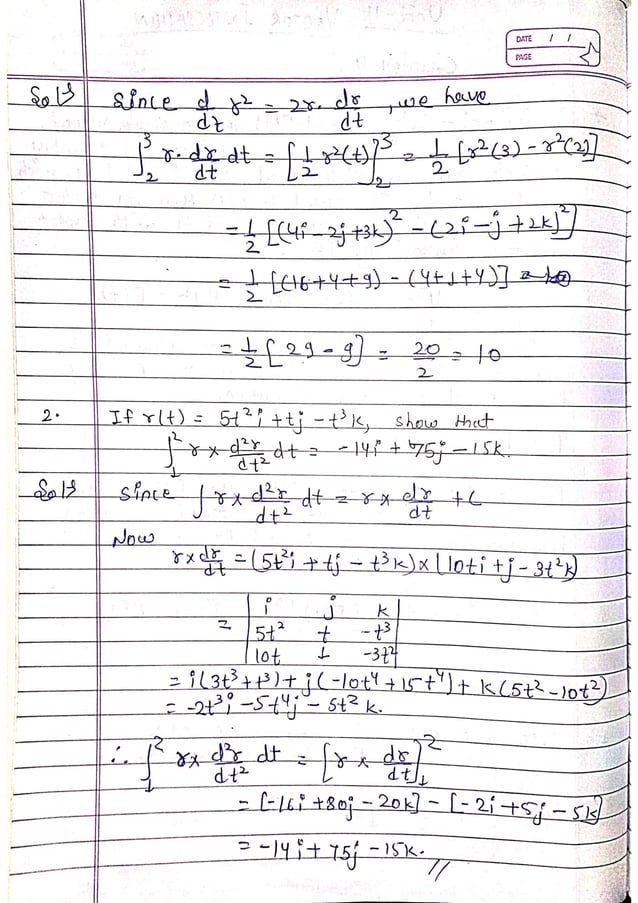 DATE / /
PAGE
Solⁿ Since d/dt r² = 2r. dr/dt, we have
∫₂³ r. dr/dt dt = [1/2 r²(t)]₂³ = 1/2 [r²(3) - r²(2)]
= 1/2 [(4i - 2j + 3k)² - (2i - j + 2k)²]
= 1/2 [(16+4+9) - (4+1+4)]
= 1/2 [29 - 9] = 20/2 = 10
2. If r(t) = 5t²i + tj - t³k, show that
∫₁² r × d²r/dt² dt = -14i + 75j - 15k.
Solⁿ Since ∫ r × d²r/dt² dt = r × dr/dt + c
Now
r × dr/dt = (5t²i + tj - t³k) × (10ti + j - 3t²k)
= | i j k |
| 5t² t -t³ |
| 10t 1 -3t² |
= i(3t³ + t³) + j(-10t⁴ + 15t⁴) + k(5t² - 10t²)
= -2t³i - 5t⁴j - 5t²k.
∴ ∫₁² r × d²r/dt² dt = [r × dr/dt]₁²
= [-16i + 80j - 20k] - [-2i + 5j - 5k]
= -14i + 75j - 15k. //